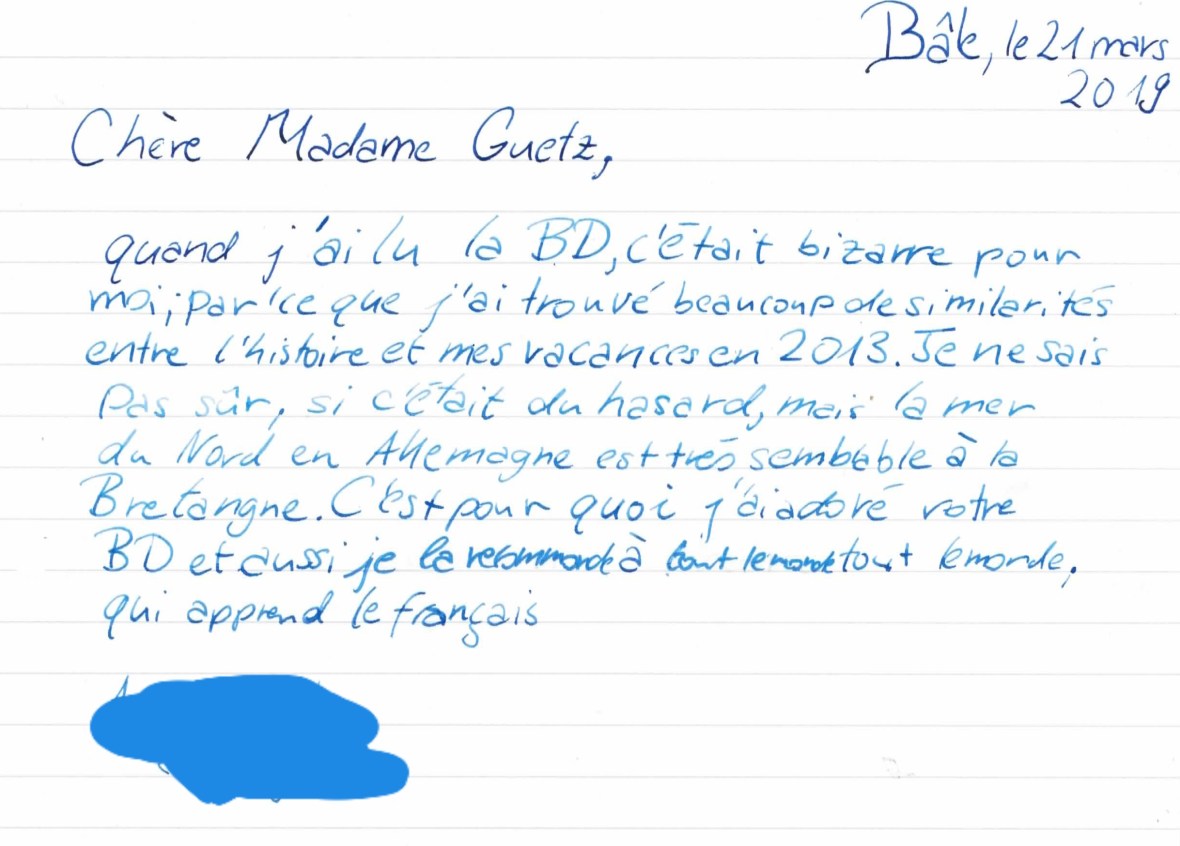 Bâle, le 21 mars
2019
Chère Madame Guetz,
quand j'ai lu la BD, c'était bizarre pour
moi, par'ce que j'ai trouvé beaucoup de similarités
entre l'histoire et mes vacances en 2013. Je ne sais
pas sûr, si c'était du hasard, mais la mer
du Nord en Allemagne est très semblable à la
Bretangne. C'est pour quoi j'ai adoré votre
BD et aussi je la recommande à tout le monde tout le monde,
qui apprend le français